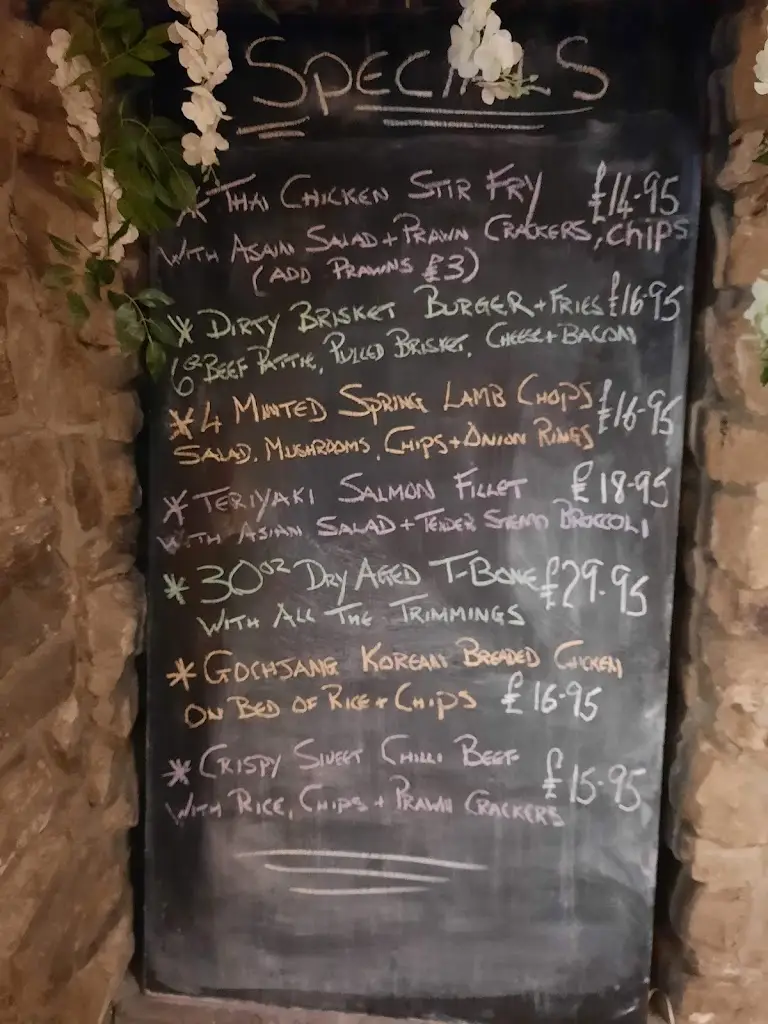 SPECIALS
* THAI CHICKEN STIR FRY £14.95
WITH ASAIN SALAD + PRAWN CRACKERS, CHIPS
(ADD PRAWNS £3)
* DIRTY BRISKET BURGER + FRIES £16.95
6oz BEEF PATTIE, PULLED BRISKET, CHEESE + BACON
* 4 MINTED SPRING LAMB CHOPS £16.95
SALAD, MUSHROOMS, CHIPS + ONION RINGS
* TERIYAKI SALMON FILLET £18.95
WITH ASIAN SALAD + TENDER STEM BROCCOLI
* 30oz DRY AGED T-BONE £29.95
WITH ALL THE TRIMMINGS
* GOCHJANG KOREAN BREADED CHICKEN
ON BED OF RICE + CHIPS £16.95
* CRISPY SWEET CHILLI BEEF £15.95
WITH RICE, CHIPS + PRAWN CRACKERS